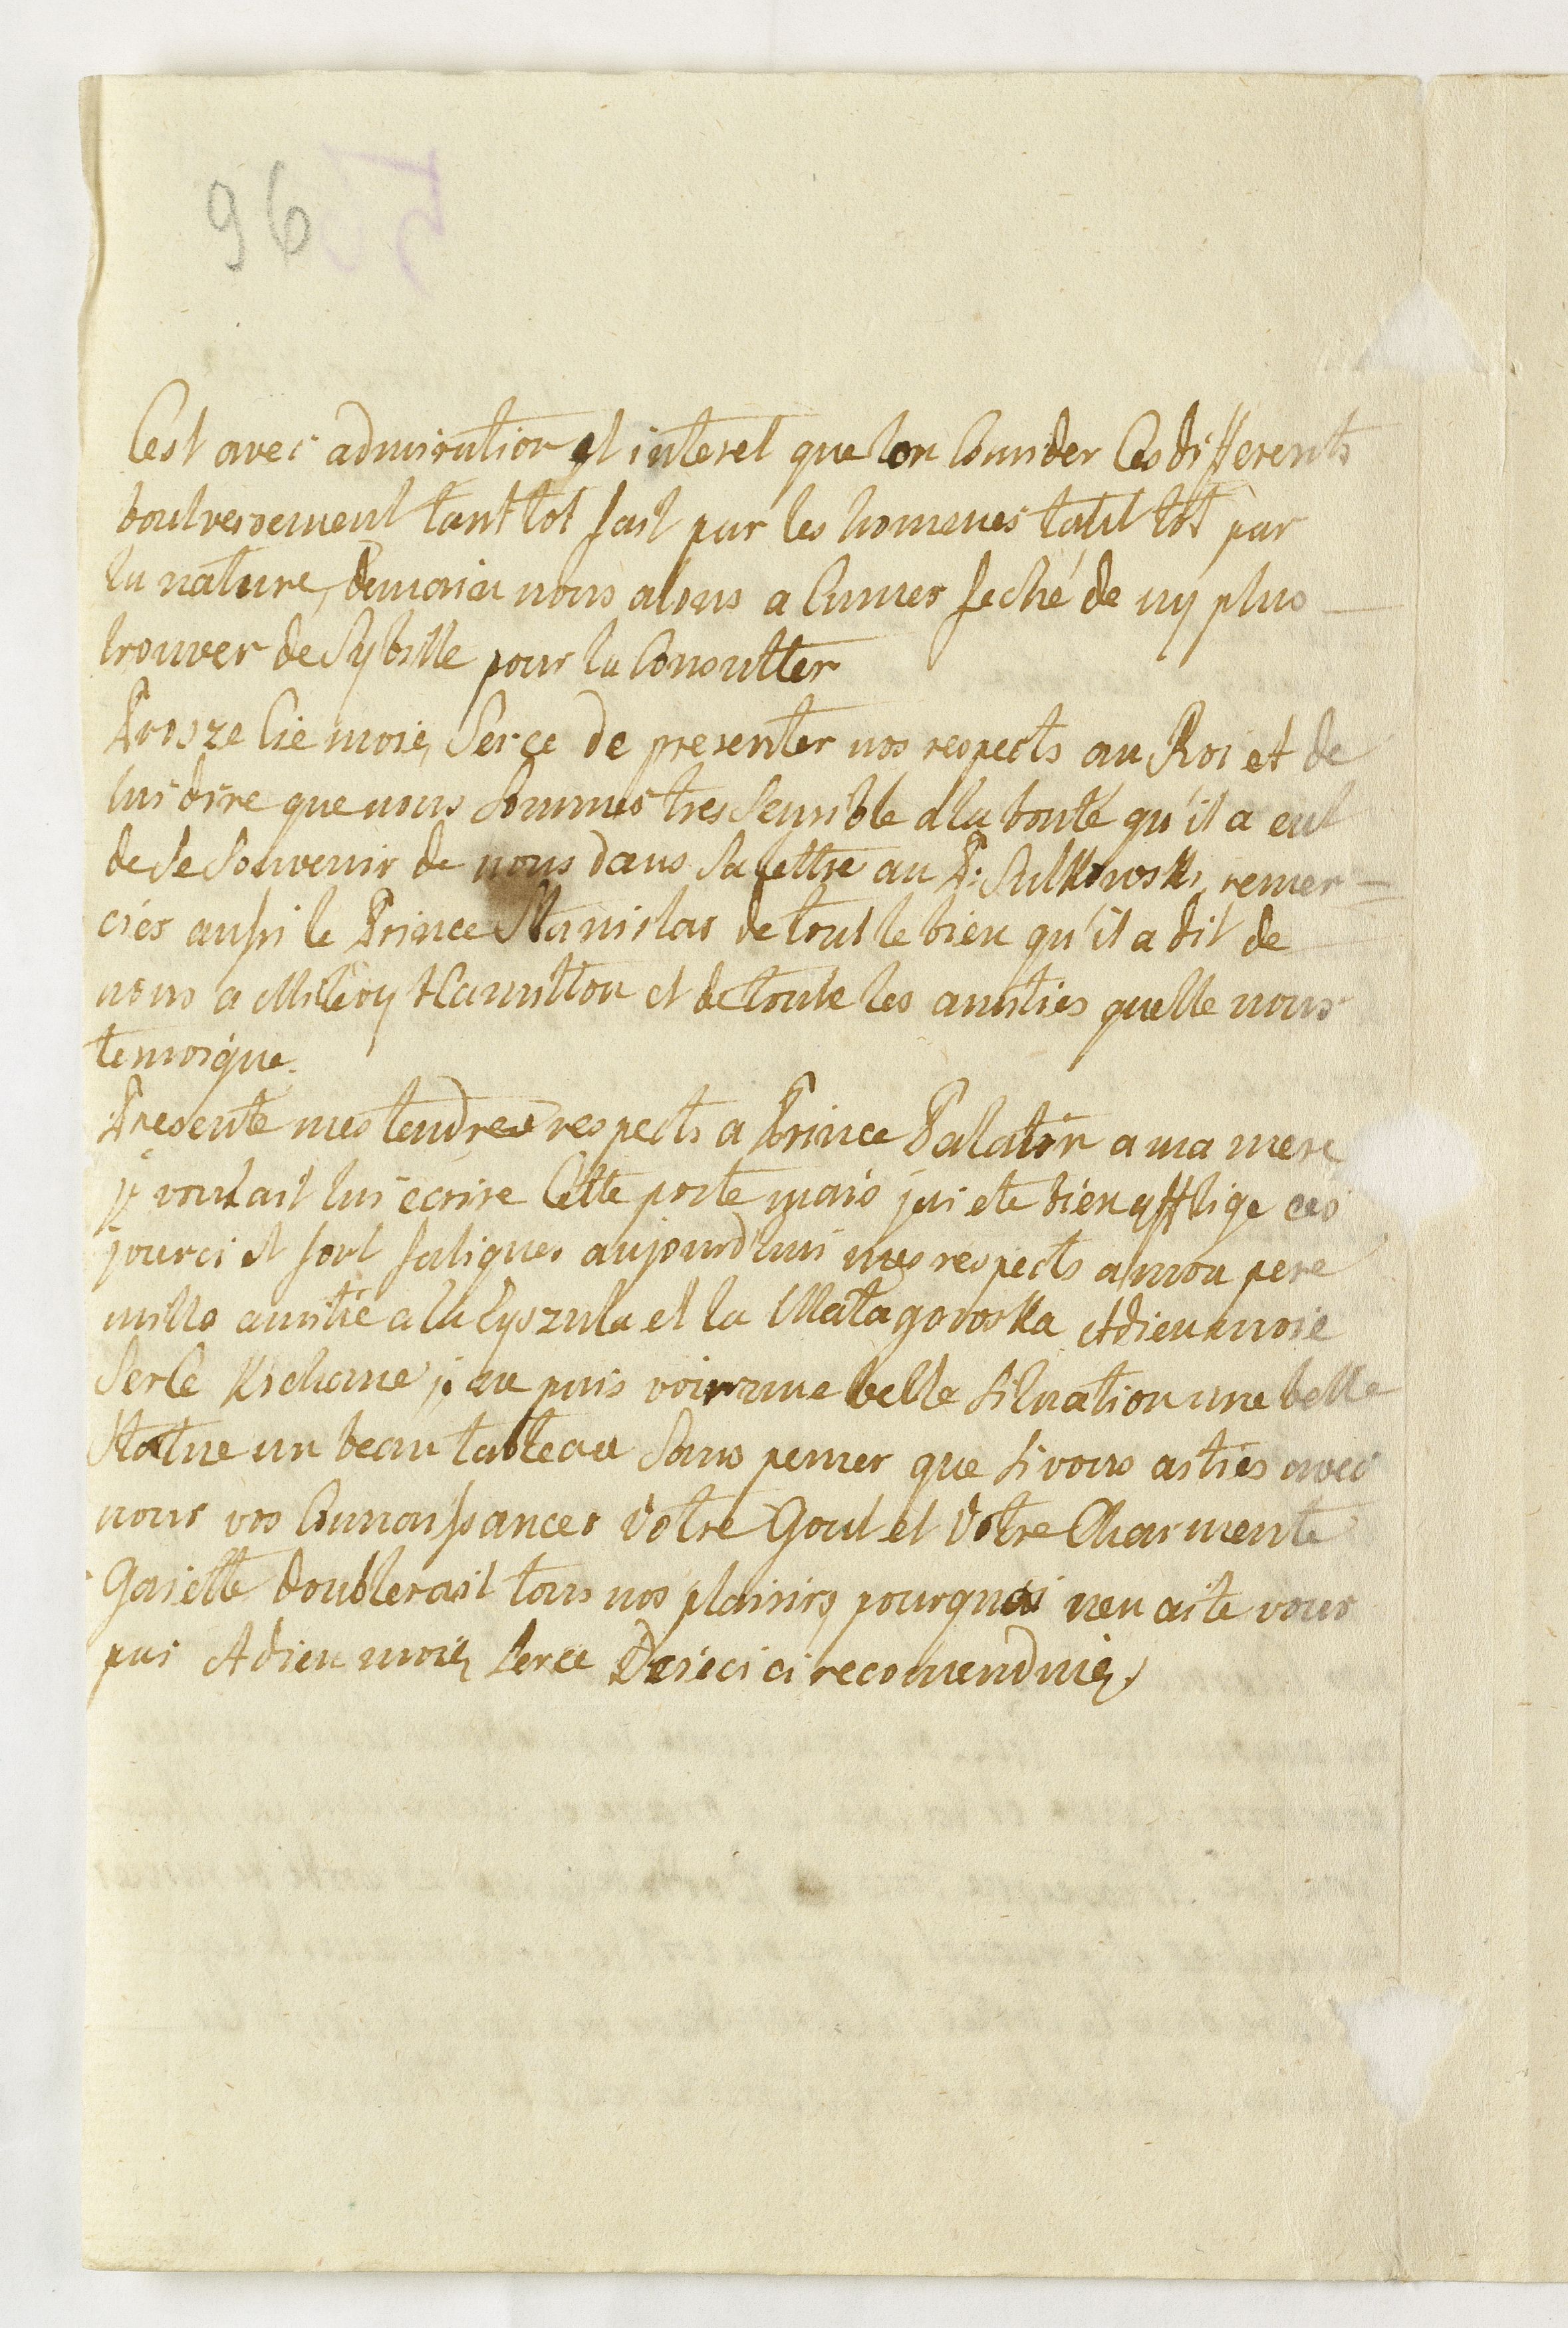 96
55
Cest avec admiration et interet que lon Consider Ces differents
boulversement tant tot fait par les homenes tant tot par
la nature, demain nous alons a Cumes feché de ny plus
trouver de Sybille pour la Consulter
Prosze Cie moie Serce de presenter nos respects au Roi et de
lui dire que nous Sommes tres Sensible a la bonté qu'il a eut
de se Souvenir de nous dans Sa lettre au P: Sulkowski, remer=
ciés aussi le Prince Stanislas de tout le bien qu'il a dit de
nous a Milédy Hamilton et de toute les amitiés quelle nous
temoigne.
Presente mes tendres respects a Prince Palatin a ma mere
je voulait lui ecrire Cette poste mais jai ete bien afflige ces
jourci et fort fatigues aujourd'hui mes respects a mon pere
mille amitié a la Lyszula et la Matagorska Adieu moie
Serce Kichane je ne puis voir une belle Situation une belle
Statue un beau tableau Sans penser que Si vous astiés avec
nous vos Connaissances Votre Gout et Votre Charmente
Gaiette doublerait tous nos plaisirs, pourquoi nen aite vous
pas Adieu moie Serce Dzieci ci recomenduie.